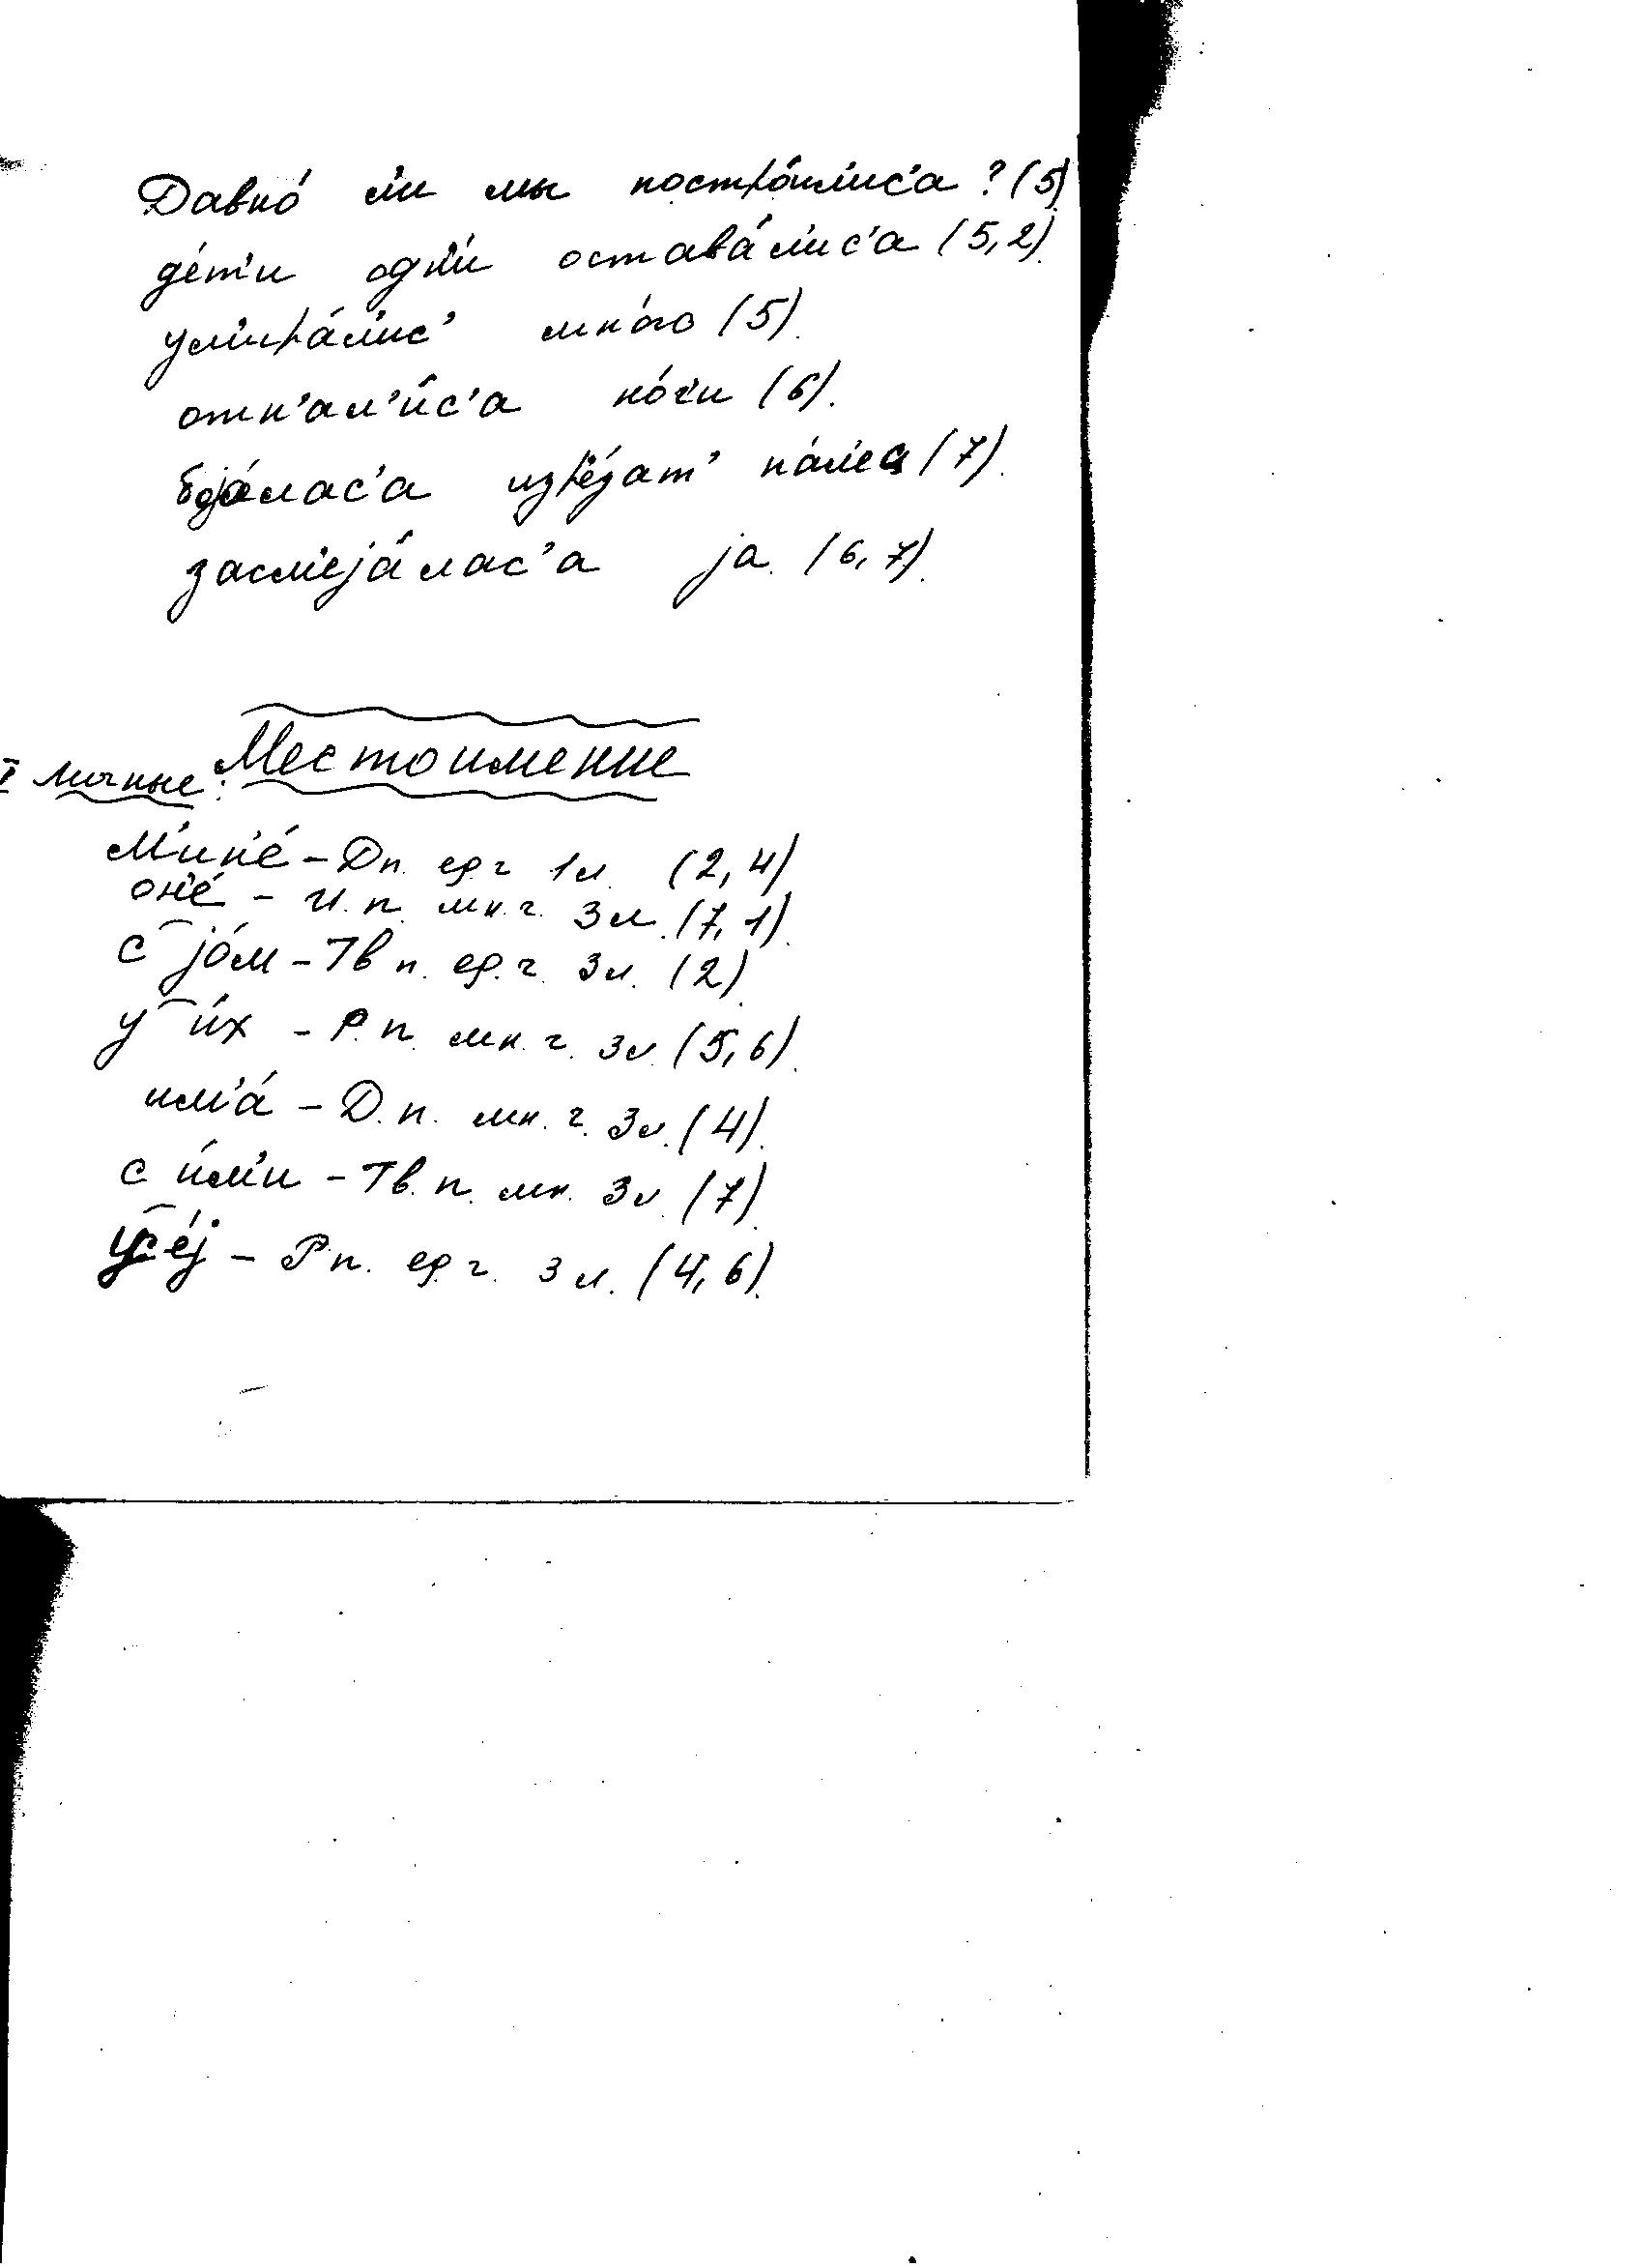 Давно́ л'и мы постро́ил'ис'а? (5)
де́т'и одн'и́ остава́л'ис'а (5,2).
ум'ира́л'ис' мно́го (5).
отн'ал'и́с'а но́г'и (6).
боја́лас'а изр'е́зат' па́л'ец (7).
засм'еја́лас'а ја. (6,7).
Местоимение
I личные:
М'ин'е́ – Дп. ед. ч 1 л. (2,4)
он'е́ – И.п. мн.ч. 3 л. (7,1).
с јо́м – Тв п. ед.ч. 3 л. (2).
у и́х – Р.п. мн.ч. 3 л (5,6).
им'а́ – Д.п. мн.ч. 3 л. (4).
с и́м'и – Тв.п. мн. 3 л (7).
е́ј – Рп. ед.ч. 3 л. (4,6).